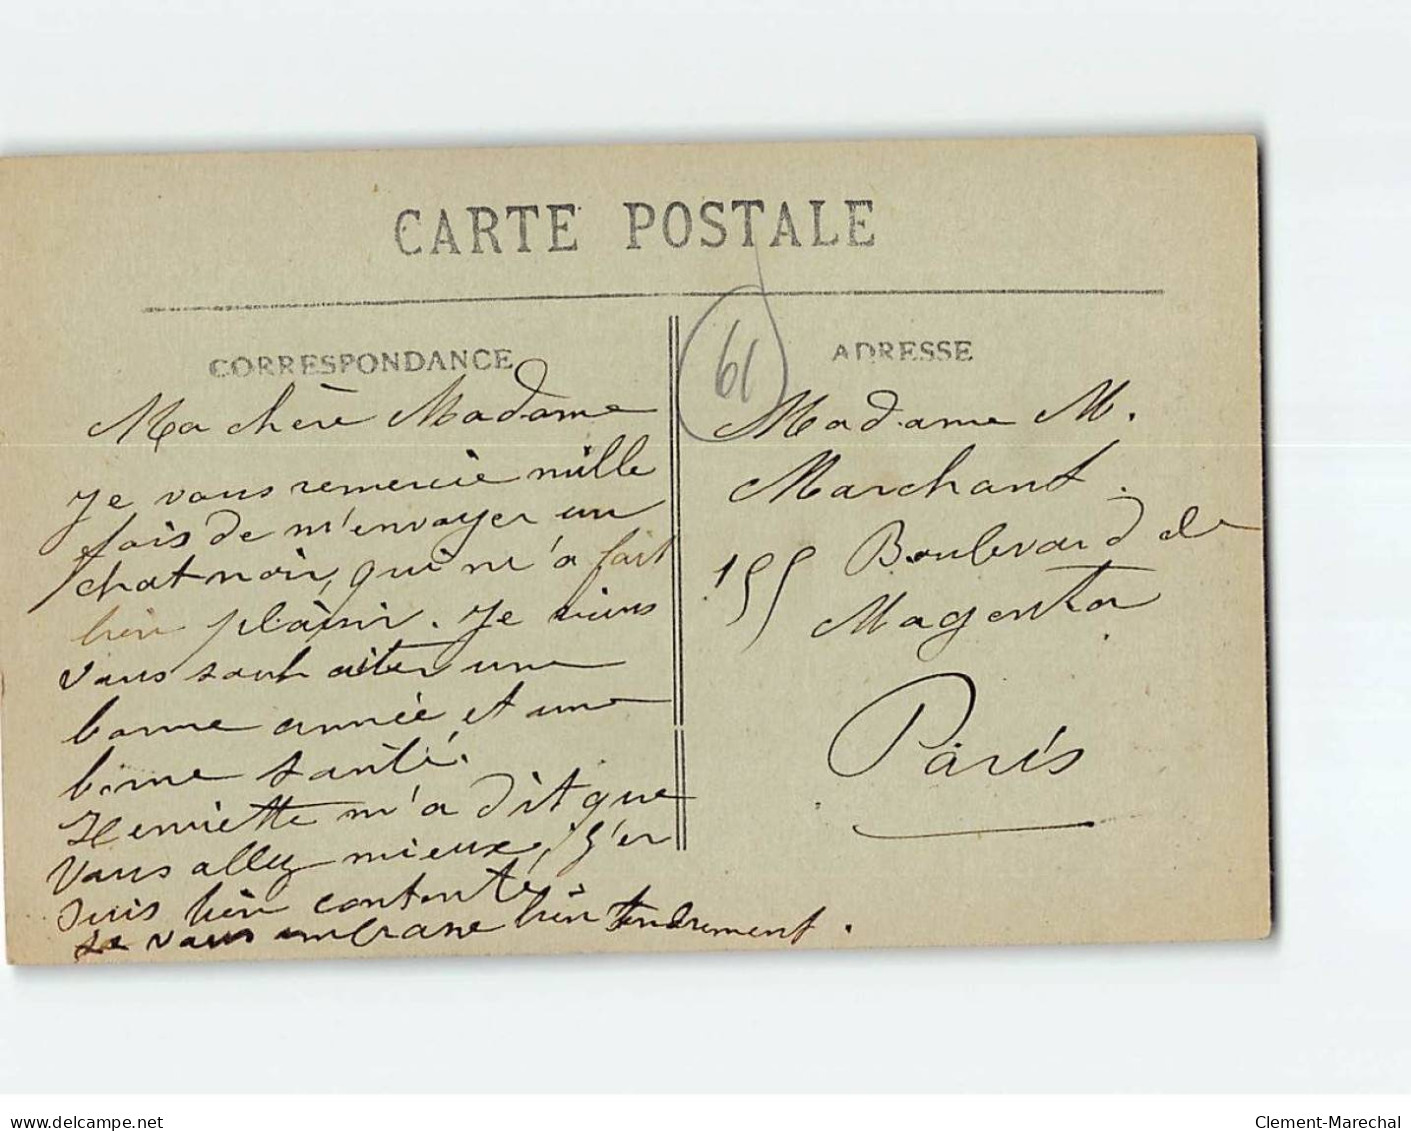 CARTE POSTALE
CORRESPONDANCE
Ma chère Madame
Je vous remercie mille
fois de m'envoyer un
chat noir, qui m'a fait
bien plaisir. Je viens
vous souhaiter une
bonne année et une
bonne santé.
Henriette m'a dit que
vous allez mieux, j'en
suis bien contente,
Je vous embrasse bien tendrement.
61
ADRESSE
Madame M.
Marchant.
155 Boulevard de
Magenta
Paris
delcampe.net
Clement-Marechal